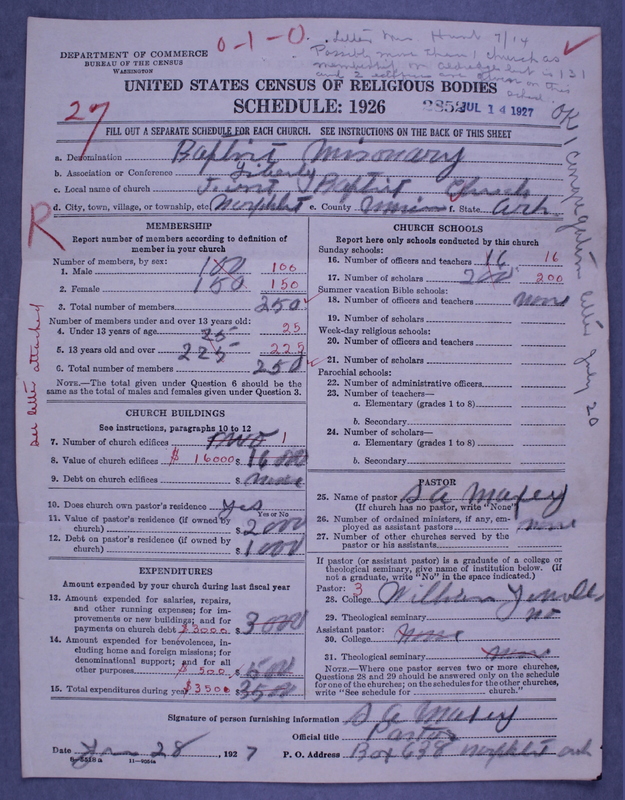 0-1-0.
Letter Mrs Hunt 7/14
Possibly more than 1 church as
membership on
and 2 edifices are given on this
sched.
DEPARTMENT OF COMMERCE
BUREAU OF THE CENSUS
WASHINGTON
UNITED STATES CENSUS OF RELIGIOUS BODIES
SCHEDULE: 1926
JUL 14 1927
27
FILL OUT A SEPARATE SCHEDULE FOR EACH CHURCH. SEE INSTRUCTIONS ON THE BACK OF THIS SHEET
OK 1 Congregation letter July 20
a. Denomination Baptist Missionary
b. Association or Conference Liberty
c. Local name of church First Baptist Church
d. City, town, village, or township, etc. Norphlet e. County Union f. State Ark.
R
see letter attached
MEMBERSHIP
Report number of members according to definition of
member in your church
Number of members, by sex:
1. Male 100 100
2. Female 150 150
3. Total number of members 250
Number of members under and over 13 years old:
4. Under 13 years of age 25 25
5. 13 years old and over 225 225
6. Total number of members 250
NOTE.—The total given under Question 6 should be the
same as the total of males and females given under Question 3.
CHURCH BUILDINGS
See instructions, paragraphs 10 to 12
7. Number of church edifices two 1
8. Value of church edifices $ 16000 $ 16000
9. Debt on church edifices $ none
10. Does church own pastor's residence yes
Yes or No
11. Value of pastor's residence (if owned by
church) $ 2000
12. Debt on pastor's residence (if owned by
church) $ 1000
EXPENDITURES
Amount expended by your church during last fiscal year
13. Amount expended for salaries, repairs,
and other running expenses; for im-
provements or new buildings; and for
payments on church debt $3000 $ 3000
14. Amount expended for benevolences, in-
cluding home and foreign missions; for
denominational support; and for all
other purposes $ 500 $ 500
15. Total expenditures during year $3500 $ 3500
CHURCH SCHOOLS
Report here only schools conducted by this church
Sunday schools:
16. Number of officers and teachers 16 16
17. Number of scholars 200 200
Summer vacation Bible schools:
18. Number of officers and teachers none
19. Number of scholars
Week-day religious schools:
20. Number of officers and teachers
21. Number of scholars
Parochial schools:
22. Number of administrative officers
23. Number of teachers—
a. Elementary (grades 1 to 8)
b. Secondary
24. Number of scholars—
a. Elementary (grades 1 to 8)
b. Secondary
PASTOR
25. Name of pastor S A Maxey
(If church has no pastor, write "None")
26. Number of ordained ministers, if any, em-
ployed as assistant pastors none
27. Number of other churches served by the
pastor or his assistants
If pastor (or assistant pastor) is a graduate of a college or
theological seminary, give name of institution below. (If
not a graduate, write "No" in the space indicated.)
Pastor: 3
28. College William
29. Theological seminary no
Assistant pastor:
30. College None
31. Theological seminary None
NOTE.—Where one pastor serves two or more churches,
Questions 28 and 29 should be answered only on the schedule
for one of the churches; on the schedules for the other churches,
write "See schedule for church."
Signature of person furnishing information S A Maxey
Official title Pastor
Date Jan 28, 1927 P. O. Address Box 638 Norphlet Ark
8-5518a 11-9054a